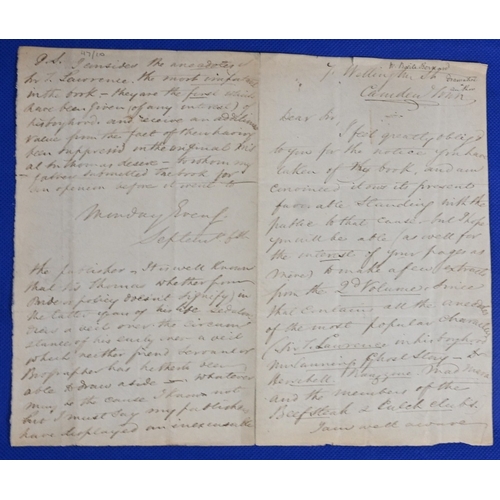 7 Wellington St
Camden Town
Dear Sir
I feel greatly oblig'd
to you for the notice you have
taken of my book, and am
convinced it owes its present
favorable standing with the
public to that cause. but I hope
you will be able (as well for
the interest of your pages as
mine) to make a few extracts
from the 2d Volume since
that contains all the anecdotes
of the most popular characters
Sir T. Lawrence in his boyhood
Mr Canning Ghost Story - Dr
Herschell
and the members of the
Beefsteak & Clubs.
I am well aware
P.S. I consider the anecdotes of
Sir T. Lawrence, the most
in the book - they are the first which
have been given (of any interest) of
his boyhood and deserve an additional
value from the fact of their having
been suppress'd in the original
at Sir Thomas desire - to whom my
father submitted the book for
an opinion before it went to
Monday Eveng
Septembr 9th
the publisher - It is well known
that Sir Thomas whether from
or policy doesn't signify) in
the latter years of his life
drew a veil over the circum
stances of his early over a veil
which neither friend servant or
Biographer has hitherto been
able to draw aside - whatever
may be the cause I know not
but I must say my publishers
have displayed an inexcusable